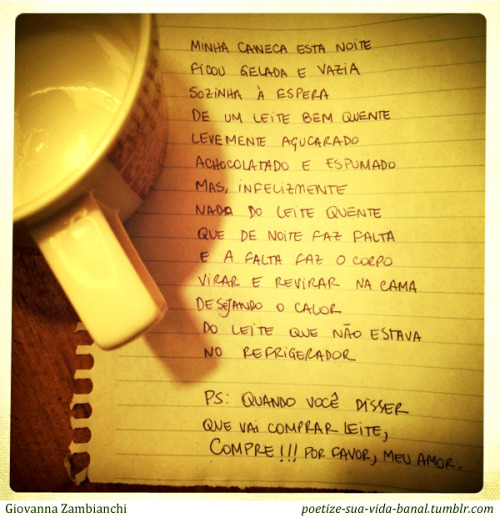 MINHA CANECA ESTA NOITE
FICOU GELADA E VAZIA
SOZINHA À ESPERA
DE UM LEITE BEM QUENTE
LEVEMENTE AÇUCARADO
ACHOCOLATADO E ESPUMADO
MAS, INFELIZMENTE
NADA DO LEITE QUENTE
QUE DE NOITE FAZ FALTA
E A FALTA FAZ O CORPO
VIRAR E REVIRAR NA CAMA
DESEJANDO O CALOR
DO LEITE QUE NÃO ESTAVA
NO REFRIGERADOR
PS: QUANDO VOCÊ DISSER
QUE VAI COMPRAR LEITE,
COMPRE!!! POR FAVOR, MEU AMOR.
Giovanna Zambianchi
poetize-sua-vida-banal.tumblr.com